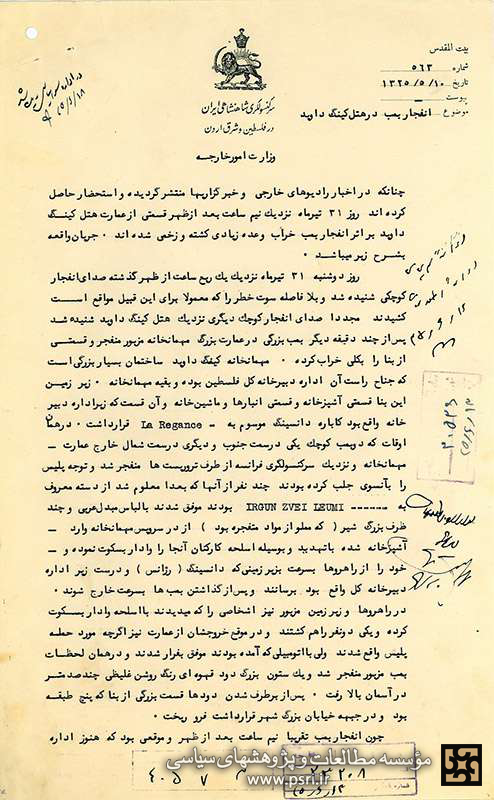 بیت المقدس
شماره ۵۶۳
تاریخ ۱۳۲۵/۵/۱۰
پیوست
موضوع انفجار بمب در هتل کینگ داوید
سرکنسولگری شاهنشاهی ایران
در فلسطین و شرق اردن
وزارت امور خارجه
چنانکه در اخبار رادیوهای خارجی و خبرگزاریها منتشر گردیده و استحضار حاصل
کرده اند روز ۳۱ تیرماه نزدیک نیم ساعت بعد از ظهر قسمتی از عمارت هتل کینگ
داوید بر اثر انفجار بمب خراب وعده زیادی کشته و زخمی شده اند . جریان واقعه
بشرح زیر میباشد .
روز دوشنبه ۳۱ تیرماه نزدیک یک ربع ساعت از ظهر گذشته صدای انفجار
کوچکی شنیده شد و بلا فاصله سوت خطر را که معمولا برای این قبیل مواقع است
کشیدند مجددا صدای انفجار کوچک دیگری نزدیک هتل کینگ داوید شنیده شد
پس از چند دقیقه دیگر بمب بزرگی در عمارت بزرگ مهمانخانه مزبور منفجر و قسمتی
از بنا را بکلی خراب کرده . مهمانخانه کینگ داوید ساختمان بسیار بزرگی است
که جناح راست آن اداره دبیرخانه کل فلسطین بوده و بقیه مهمانخانه . زیر زمین
این بنا قسمتی آشپزخانه و قسمتی انبارها و ماشین خانه و آن قسمت که زیر اداره دبیر
خانه واقع بود کاباره دانسینگ موسوم به - La Regance قرار داشت . در همان
اوقات که دو بمب کوچک یکی درست جنوب و دیگری درست شمال خارج عمارت -
مهمانخانه و نزدیک سرکنسولگری فرانسه از طرف تروریست ها منفجر شد و توجه پلیس
را بآنسوی جلب کرده بودند چند نفر از آنها که بعدا معلوم شد از دسته معروف
به ------ IRGUN ZVEI LEUMI بودند موفق شدند با لباس مبدل عربی و چند
ظرف بزرگ شیر ( که مملو از مواد منفجره بود ) از در سرویس مهمانخانه وارد -
آشپزخانه شده با تهدید و بوسیله اسلحه کارکنان آنجا را وادار بسکوت نموده و -
خود را از راهروها بسرعت بزیر زمینی که دانسینگ ( رژانس ) و درست زیر اداره
دبیرخانه کل واقع بود برسانند و پس از گذاشتن بمب ها بسرعت خارج شوند .
در راهروها و زیر زمین مزبور نیز اشخاصی را که میدیدند با اسلحه وادار بسکوت
کرده و یکی دو نفر راهم کشتند و در موقع خروجشان از عمارت نیز اگرچه مورد حمله
پلیس واقع شدند ولی با اتومبیلی که آمده بودند موفق بفرار شدند و در همان لحظات
بمب مزبور منفجر شد و یک ستون بزرگ دود قهوه ای رنگ روشن غلیظی چند صد متر
در آسمان بالا رفت . پس از بر طرف شدن دودها قسمت بزرگی از بنا که پنج طبقه
بود و در جبهه خیابان بزرگ شهر قرار داشت فرو ریخت .
چون انفجار بمب تقریبا نیم ساعت بعد از ظهر و موقعی بود که هنوز اداره
مؤسسه مطالعات و پژوهشهای سیاسی
www.psri.ir